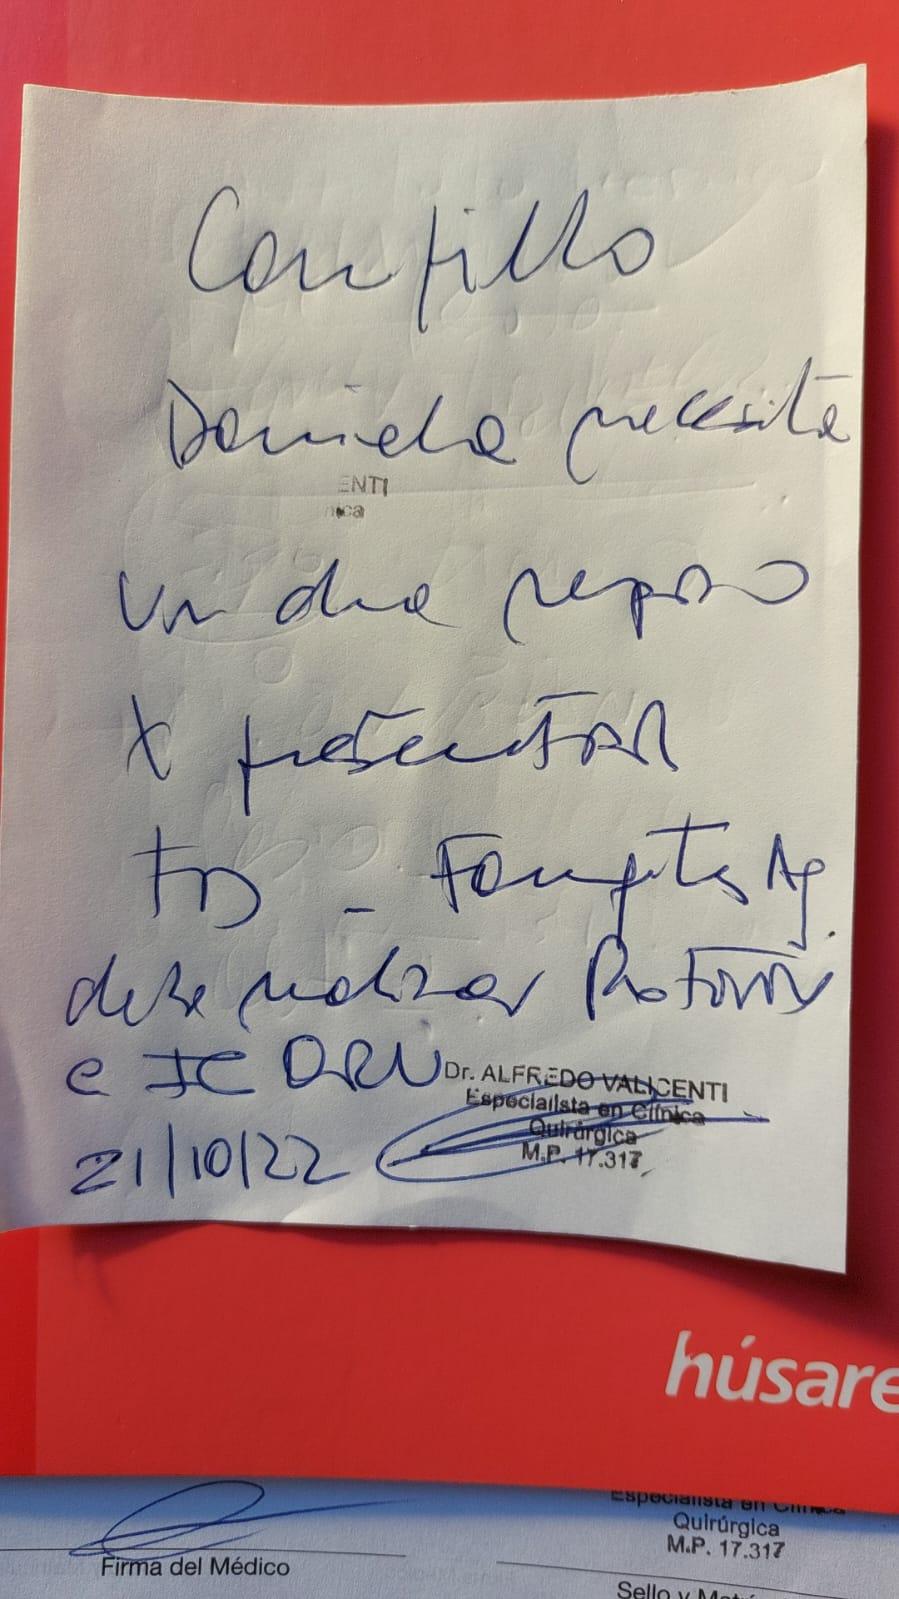 Daniela necesita
ENTI
nica
un dia reposo
X presentar
debe realizar
e IC ORL
Dr. ALFREDO VALICENTI
Especialista en Clínica
Quirúrgica
M.P. 17.317
21/10/22
húsare
Especialista en Clínica
Quirúrgica
M.P. 17.317
Firma del Médico
Sello y Mat